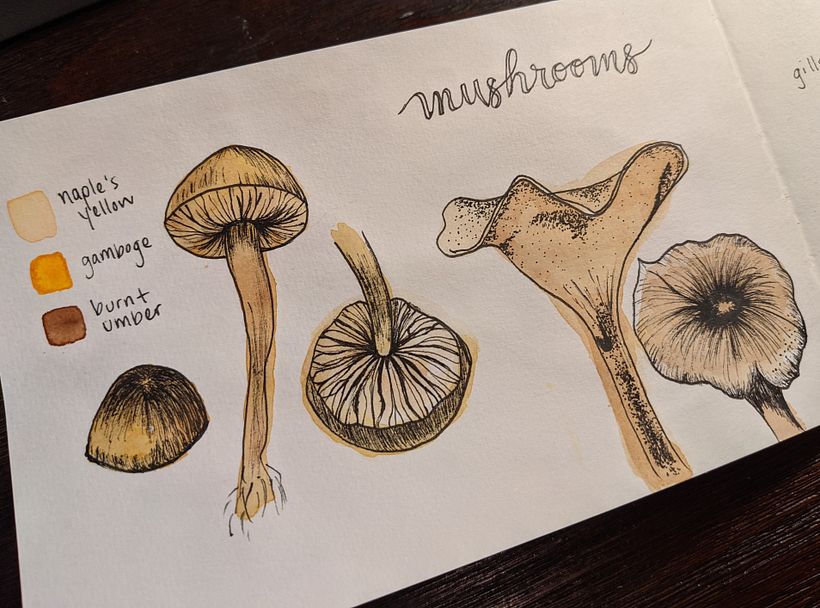 mushrooms
naple's
yellow
gamboge
burnt
umber